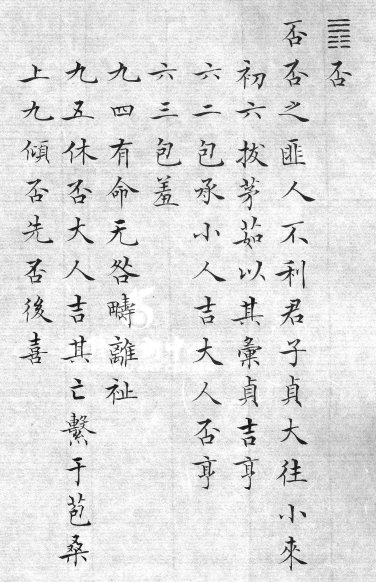 ䷋否
否否之匪人不利君子貞大往小來
初六拔茅茹以其彙貞吉亨
六二包承小人吉大人否亨
六三包羞
九四有命无咎疇離祉
九五休否大人吉其亡繫于苞桑
上九傾否先否後喜